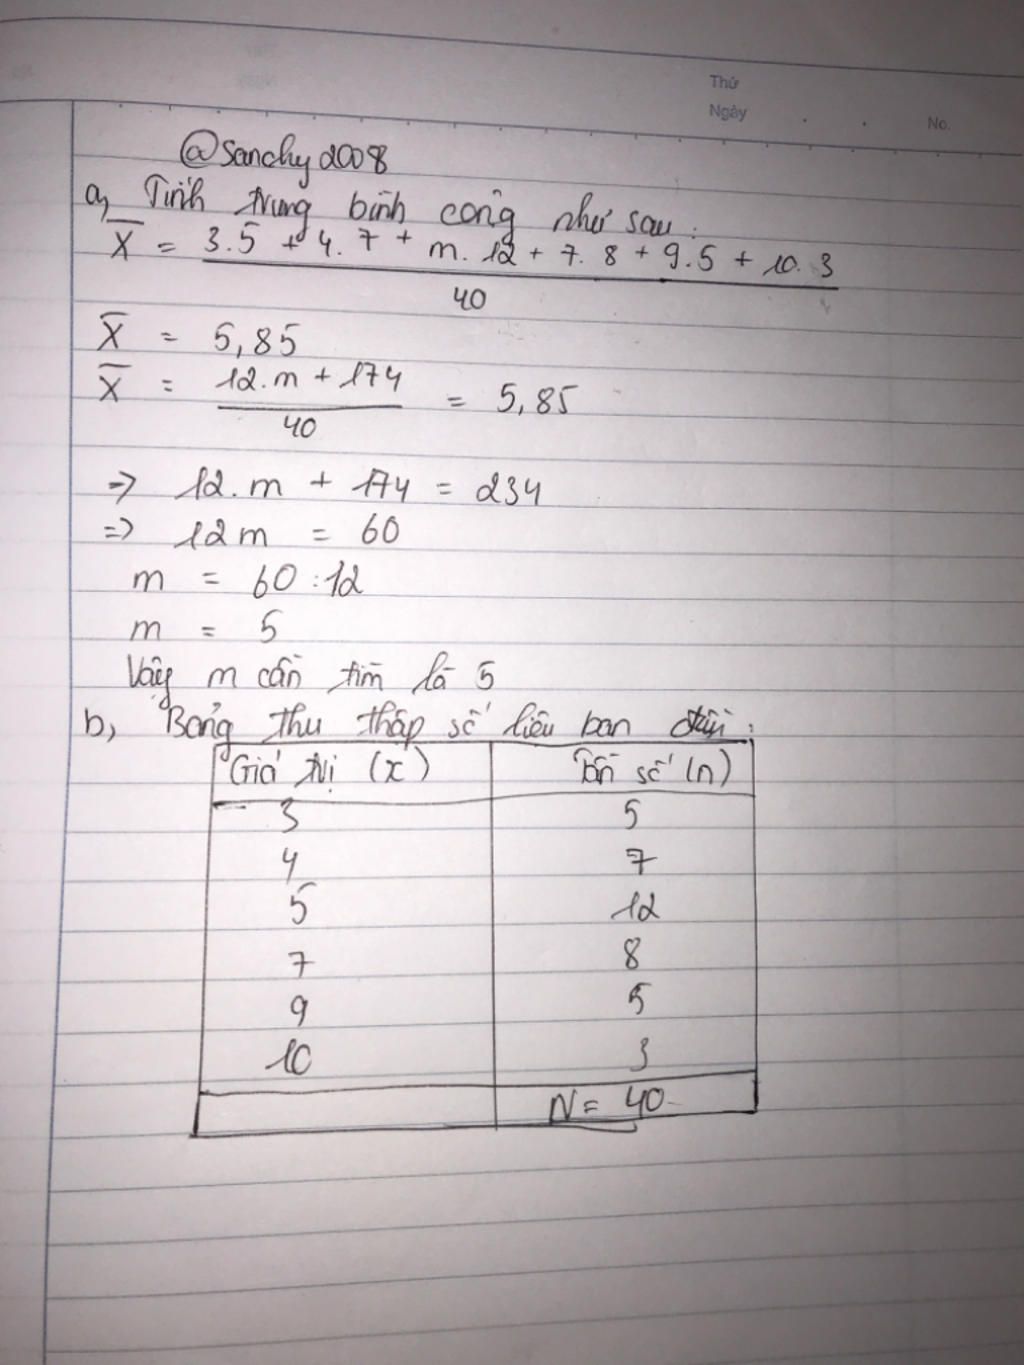 Thứ
Ngày
No.
@Sanchy2008
a, Tính trung bình cộng như sau:
X̅ = 3.5 + 4.7 + m.12 + 7.8 + 9.5 + 10.3
40
X̅ = 5,85
X̅ = 12.m + 174 = 5,85
40
=> 12.m + 174 = 234
=> 12m = 60
m = 60:12
m = 5
Vậy m cần tìm là 5
b, Bảng thu thập số liệu ban đầu:
Giá trị (x) Tần số (n)
3 5
4 7
5 12
7 8
9 5
10 3
N = 40